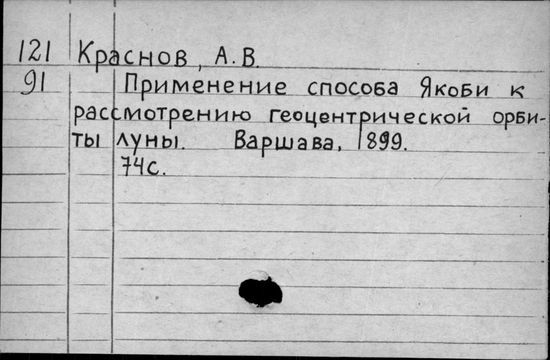 121 Краснов, А. В.
91 Применение способа Якоби к
рассмотрению геоцентрической орби-
ты луны. Варшава, 1899.
74с.